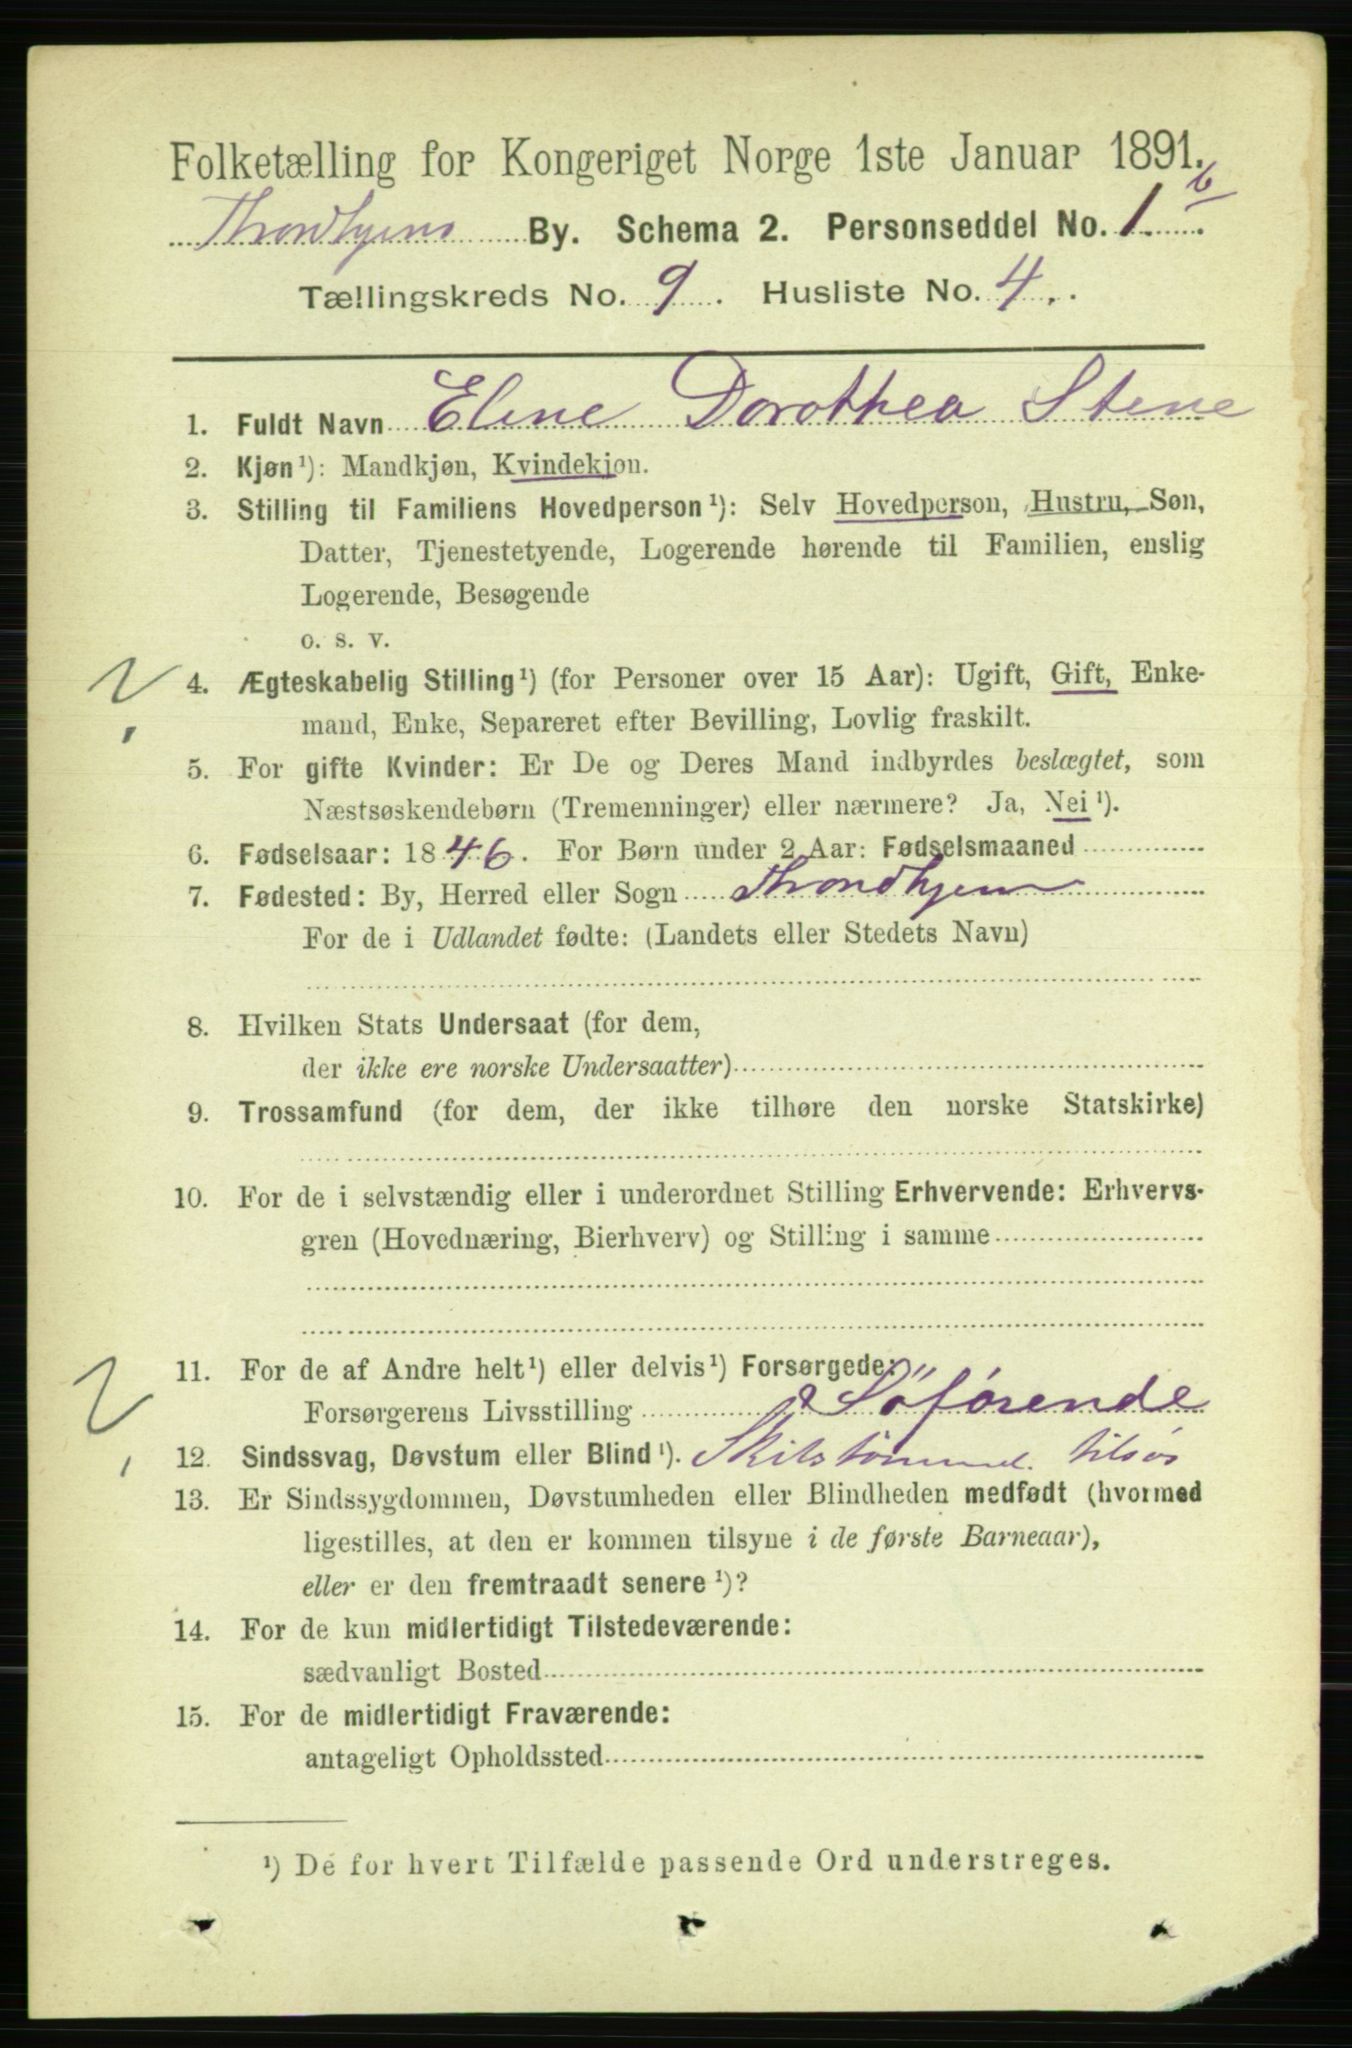 Folketælling for Kongeriget Norge 1ste Januar 1891.
Throndhjems By. Schema 2. Personseddel No. 1. b
Tællingskreds No. 9. Husliste No. 4.
1. Fuldt Navn Eline Dorothea Stene
2. Kjøn¹): Mandkjøn, Kvindekjøn.
3. Stilling til Familiens Hovedperson¹): Selv Hovedperson, Hustru, Søn,
Datter, Tjenestetyende, Logerende hørende til Familien, enslig
Logerende, Besøgende
o. s. v.
4. Ægteskabelig Stilling¹) (for Personer over 15 Aar): Ugift, Gift, Enke-
mand, Enke, Separeret efter Bevilling, Lovlig fraskilt.
5. For gifte Kvinder: Er De og Deres Mand indbyrdes beslægtet, som
Næstsøskendebørn (Tremenninger) eller nærmere? Ja, Nei¹).
6. Fødselsaar: 1846. For Børn under 2 Aar: Fødselsmaaned
7. Fødested: By, Herred eller Sogn Throndhjem
For de i Udlandet fødte: (Landets eller Stedets Navn)
8. Hvilken Stats Undersaat (for dem,
der ikke ere norske Undersaatter)
9. Trossamfund (for dem, der ikke tilhøre den norske Statskirke)
10. For de i selvstændig eller i underordnet Stilling Erhvervende: Erhvervs-
gren (Hovednæring, Bierhverv) og Stilling i samme
11. For de af Andre helt¹) eller delvis¹) Forsørgede:
Forsørgerens Livsstilling Söförende
12. Sindssvag, Døvstum eller Blind¹). tilsøs
13. Er Sindssygdommen, Døvstumheden eller Blindheden medfødt (hvormed
ligestilles, at den er kommen tilsyne i de første Barneaar),
eller er den fremtraadt senere¹)?
14. For de kun midlertidigt Tilstedeværende:
sædvanligt Bosted
15. For de midlertidigt Fraværende:
antageligt Opholdssted
¹) De for hvert Tilfælde passende Ord understreges.